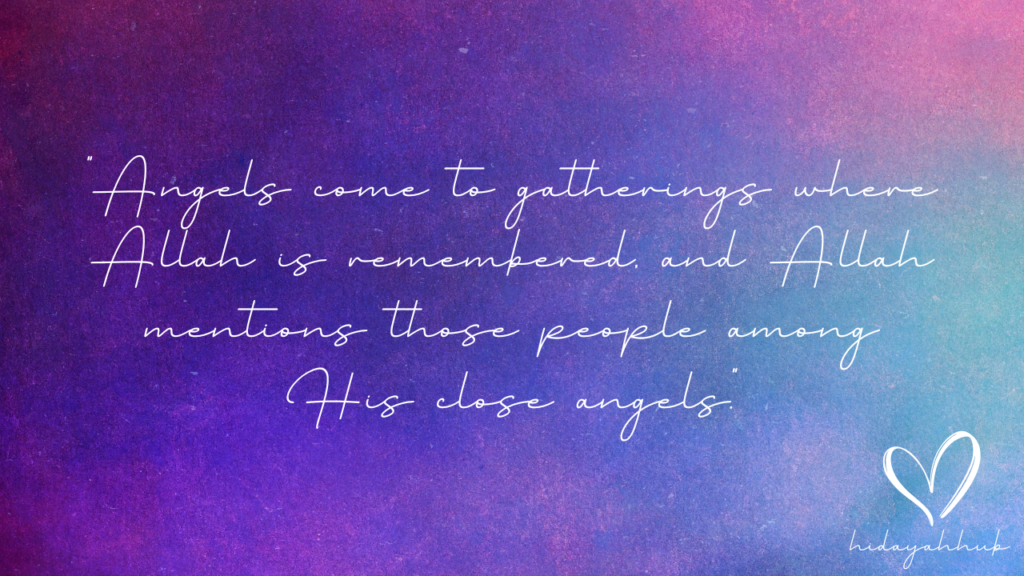 "Angels come to gatherings where
Allah is remembered, and Allah
mentions those people among
His close angels."
hidayahhub